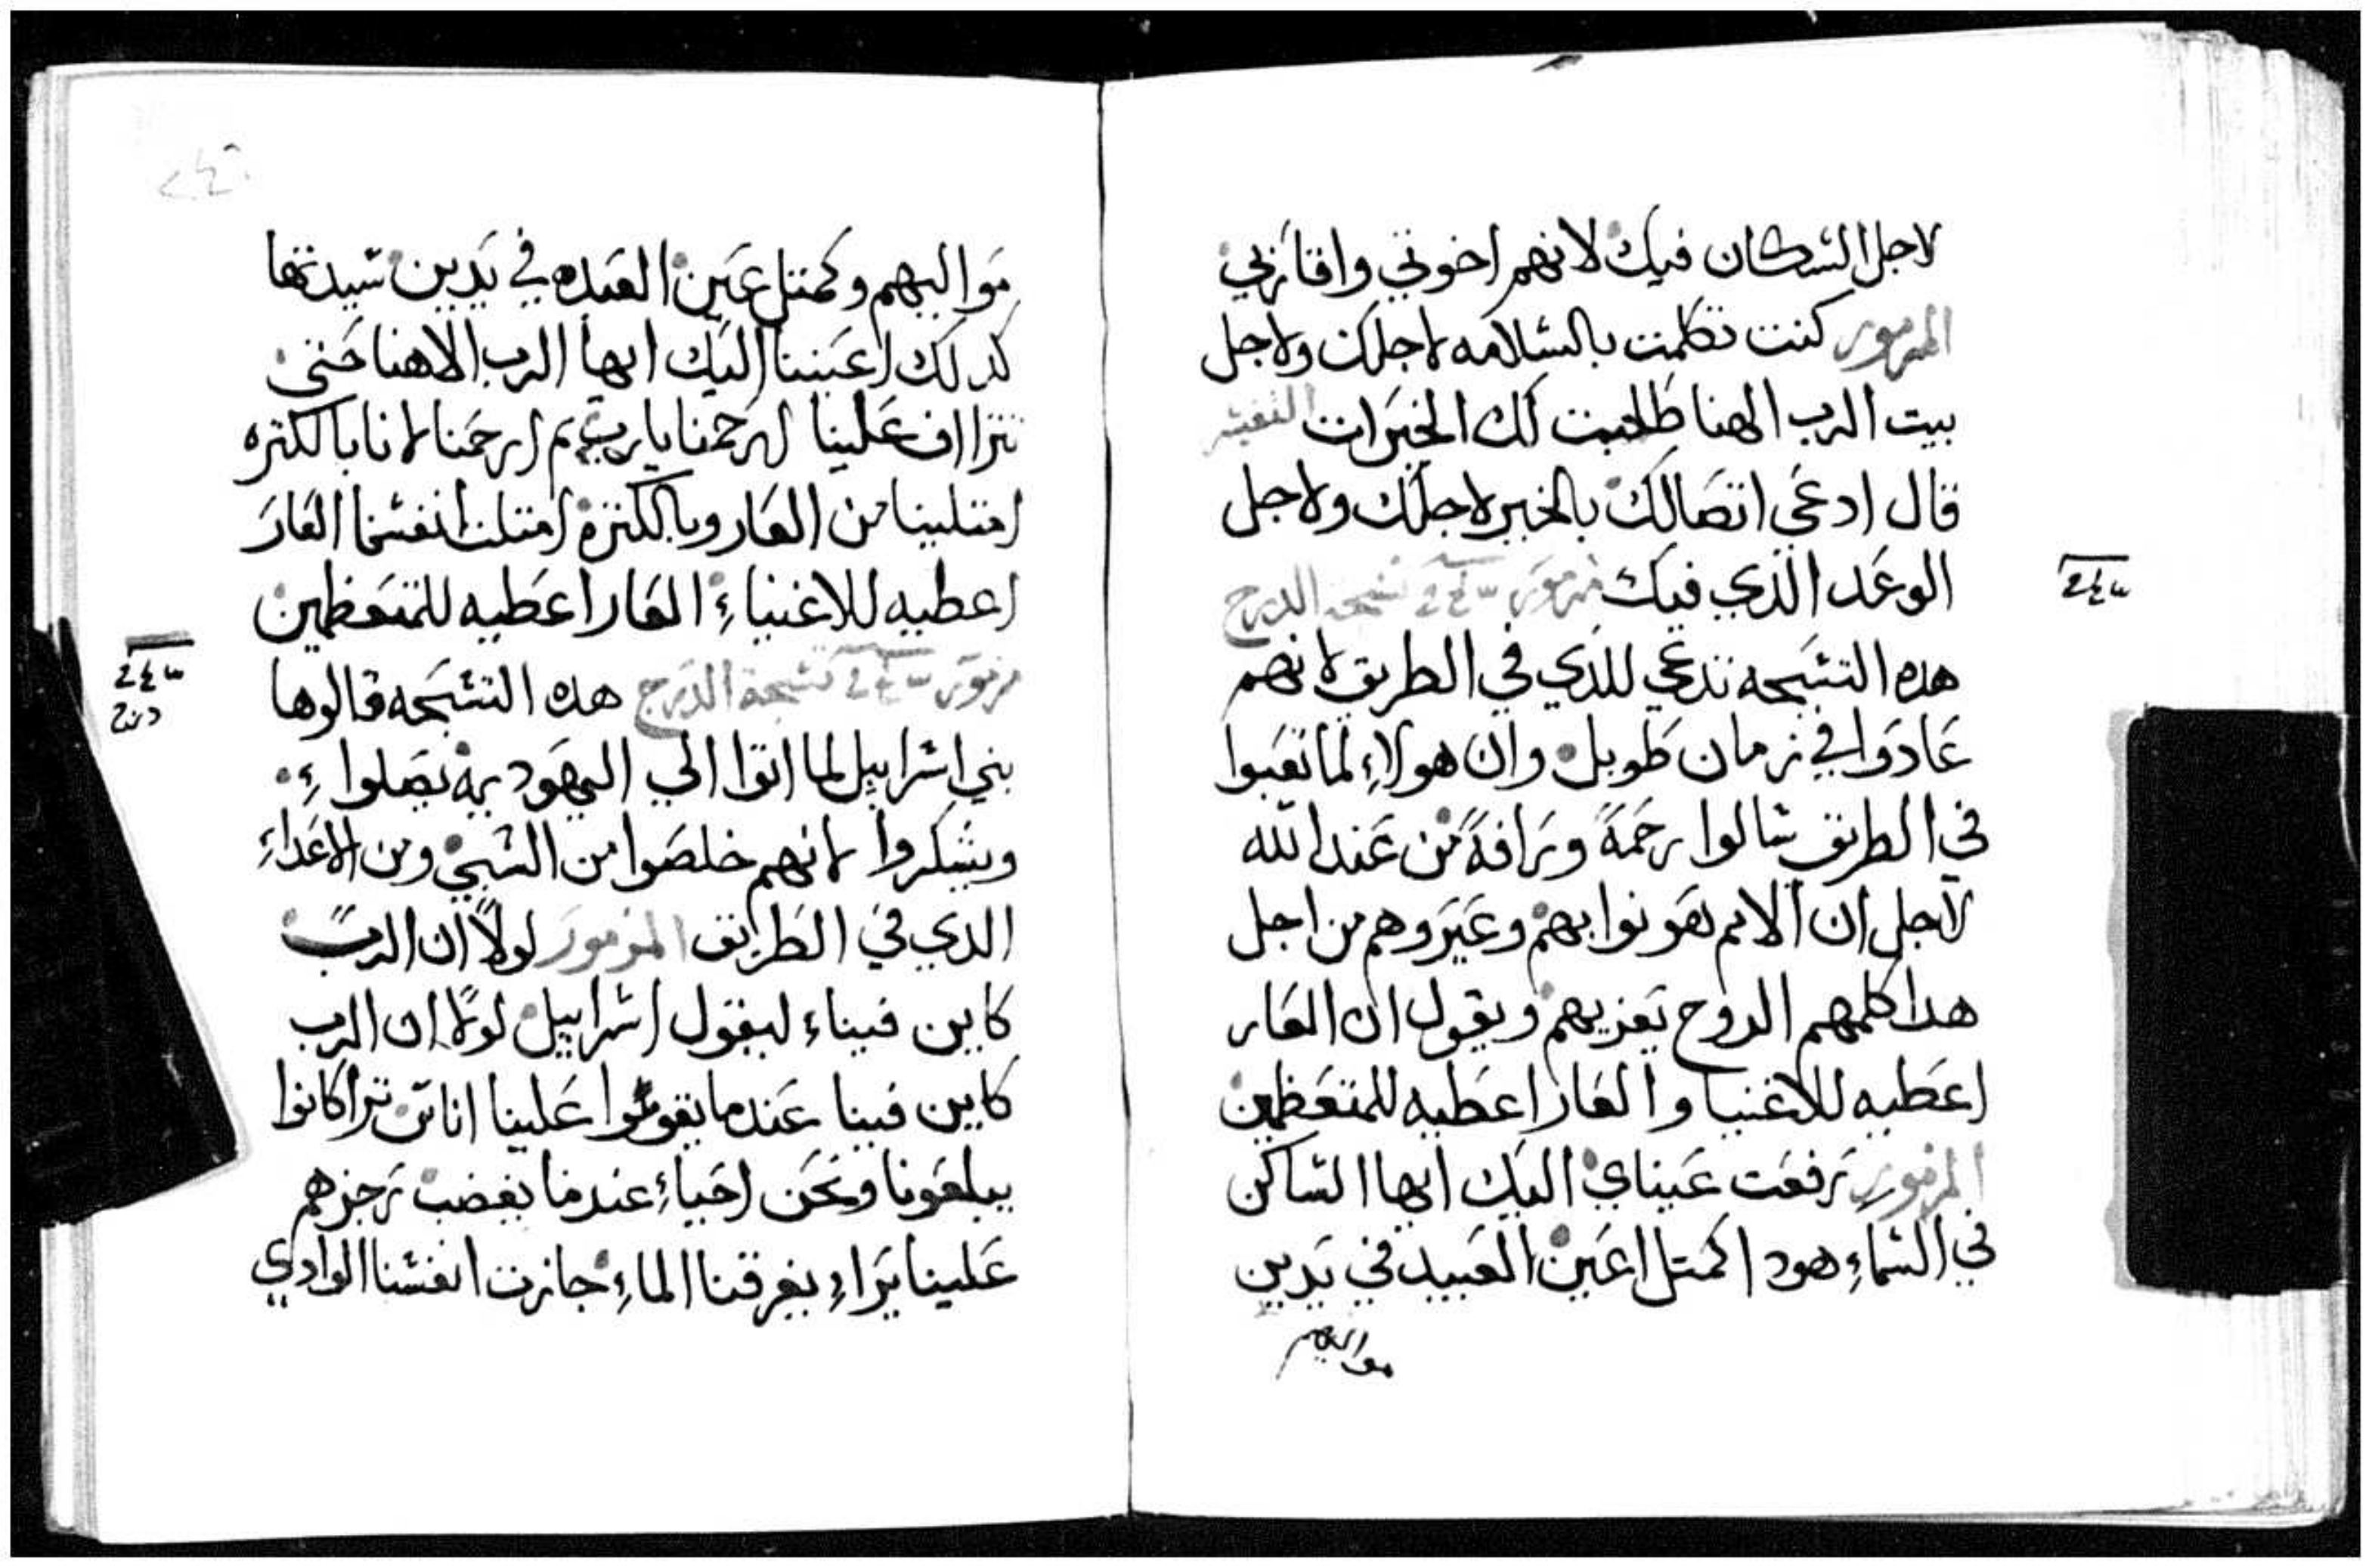 لاجل السكان فيك لانهم اخوتي واقاربي
المزمور كنت تكلمت بالسلامه لاجلك ولاجل
بيت الرب الهنا طلبت لك الخيرات التفسير
قال ادعي اتصالك بالخير لاجلك ولاجل
الوعد الذي فيك مزمور تسبحة الدرج
هده التسبحه تدعي للدي في الطريق لانهم
عادوا في زمان طويل وان هولاء لما تعبوا
في الطريق سالوا رحمة ورافة من عند الله
لاجل ان الامم تهونوا بهم وعيروهم من اجل
هدا كلمهم الروح تعزيهم ويقول ان العار
اعطيه للاغنيا والعار اعطيه للمتعظمين
المزمور رفعت عيناي اليك ايها الساكن
في السماء هودا كمتل اعين العبيد في يدين
مواليهم
مواليهم وكمتل عين العبده في يدين سيدتها
كدلك اعيننا اليك ايها الرب الاهنا حتي
تتراأف علينا ارحمنا يارب تم ارحمنا لانا بالكتره
امتلينا من العار وبالكترة امتلت انفسنا العار
اعطيه للاغنياء العار اعطيه للمتعظمين
مزمور تسبحة الدرج هده التسبحه قالوها
بني اسراييل لما اتوا الي اليهوديه يصلوا
ويشكروا لانهم خلصوا من السبي ومن الاعداء
الدي في الطريق المزمور لولا ان الرب
كاين فيناء ليقول اسراييل لولا ان الرب
كاين فينا عندما يقوموا علينا اناس ترا كانوا
يبلعونا ونحن احياء عندما يغضب رجزهم
علينا يراء يغرقنا الماء جازت انفسنا الوادي